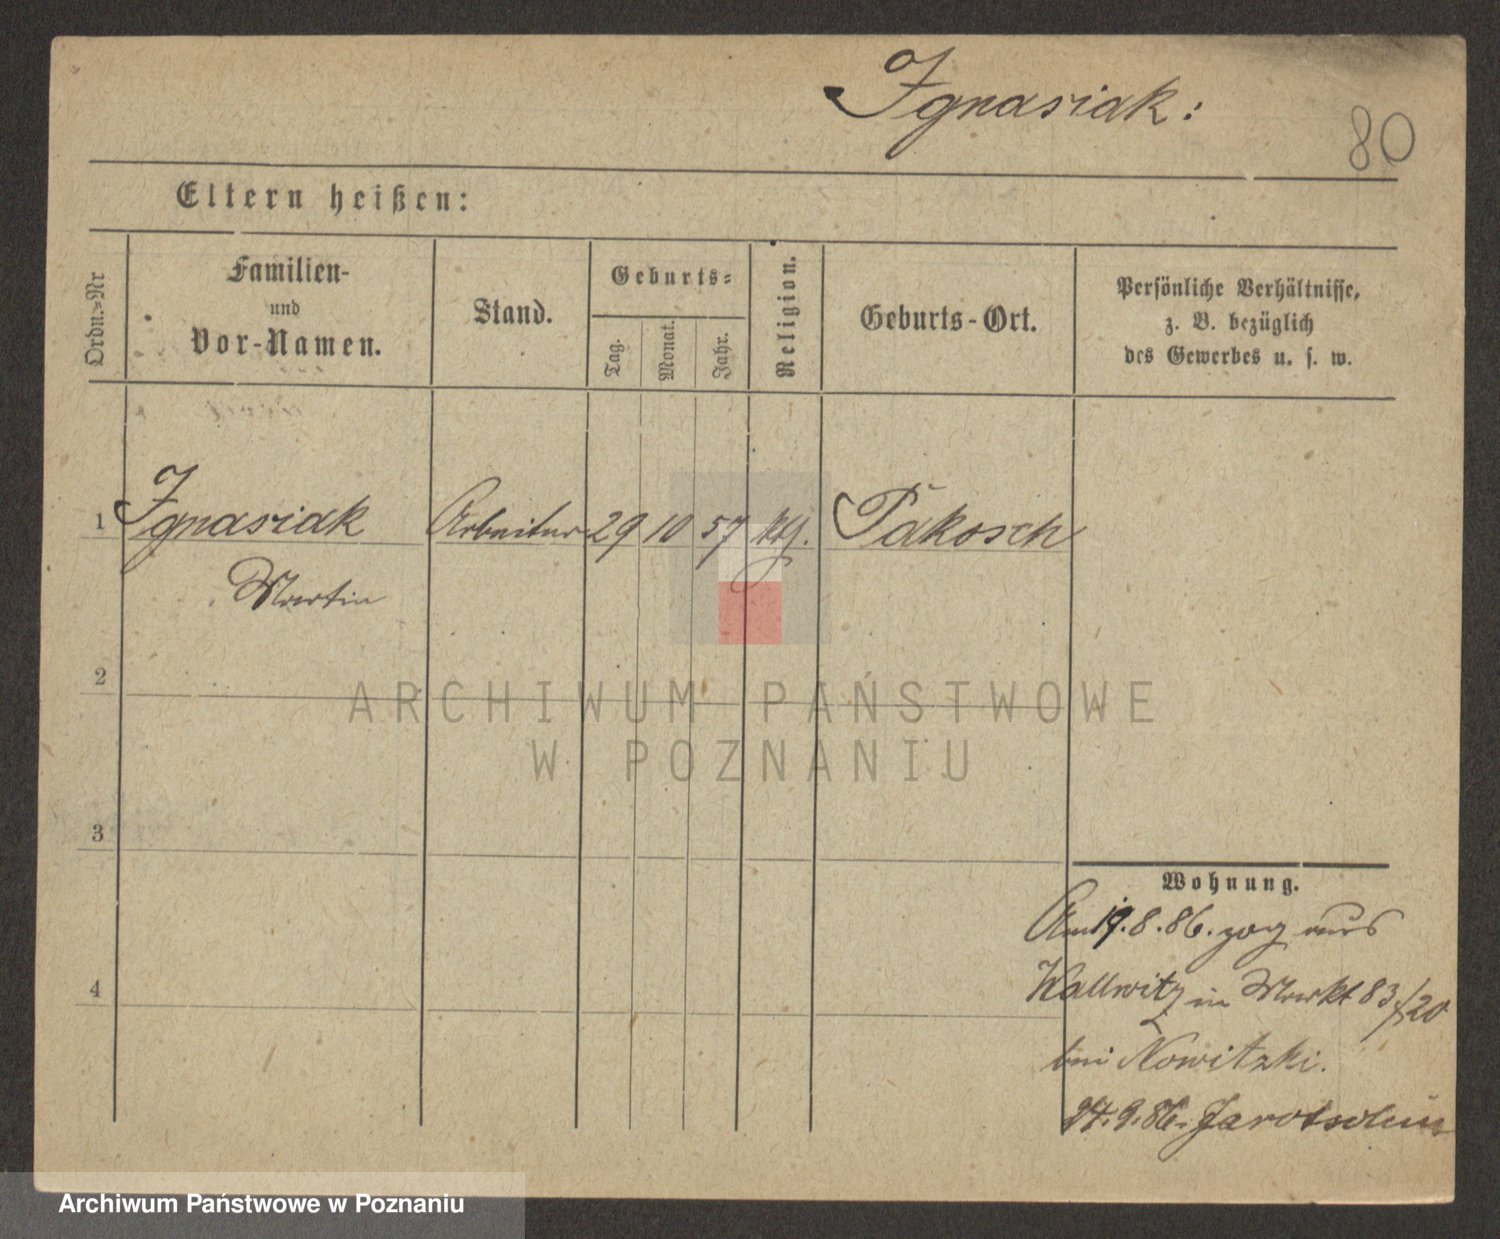 Ignasiak:
80
Eltern heißen:
Ordn.=Nr
Familien-
und
Vor-Namen.
Stand.
Geburts=
Tag.
Monat.
Jahr.
Religion.
Geburts-Ort.
Persönliche Verhältnisse,
z. B. bezüglich
des Gewerbes u. s. w.
1 Ignasiak Arbeiter 29 10 57 ktl. Pakosch
Martin
2
ARCHIWUM PAŃSTWOWE
W POZNANIU
3
4
Wohnung.
Am 19.8.86. zog aus
Kallwitz in Markt 83/20
bei Nowitzki.
24.9.86. Jarotschin
Archiwum Państwowe w Poznaniu